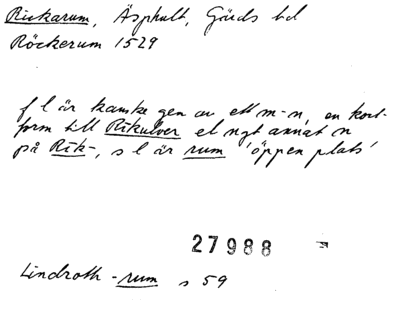 Rickarum, Äsphult, Gärds hd
Röckerum 1529
f l är kanske gen av ett m-n, en kort-
form till Rikulver el ngt annat n
på Rik-, s l är rum 'öppen plats'
27988
Lindroth -rum s 59